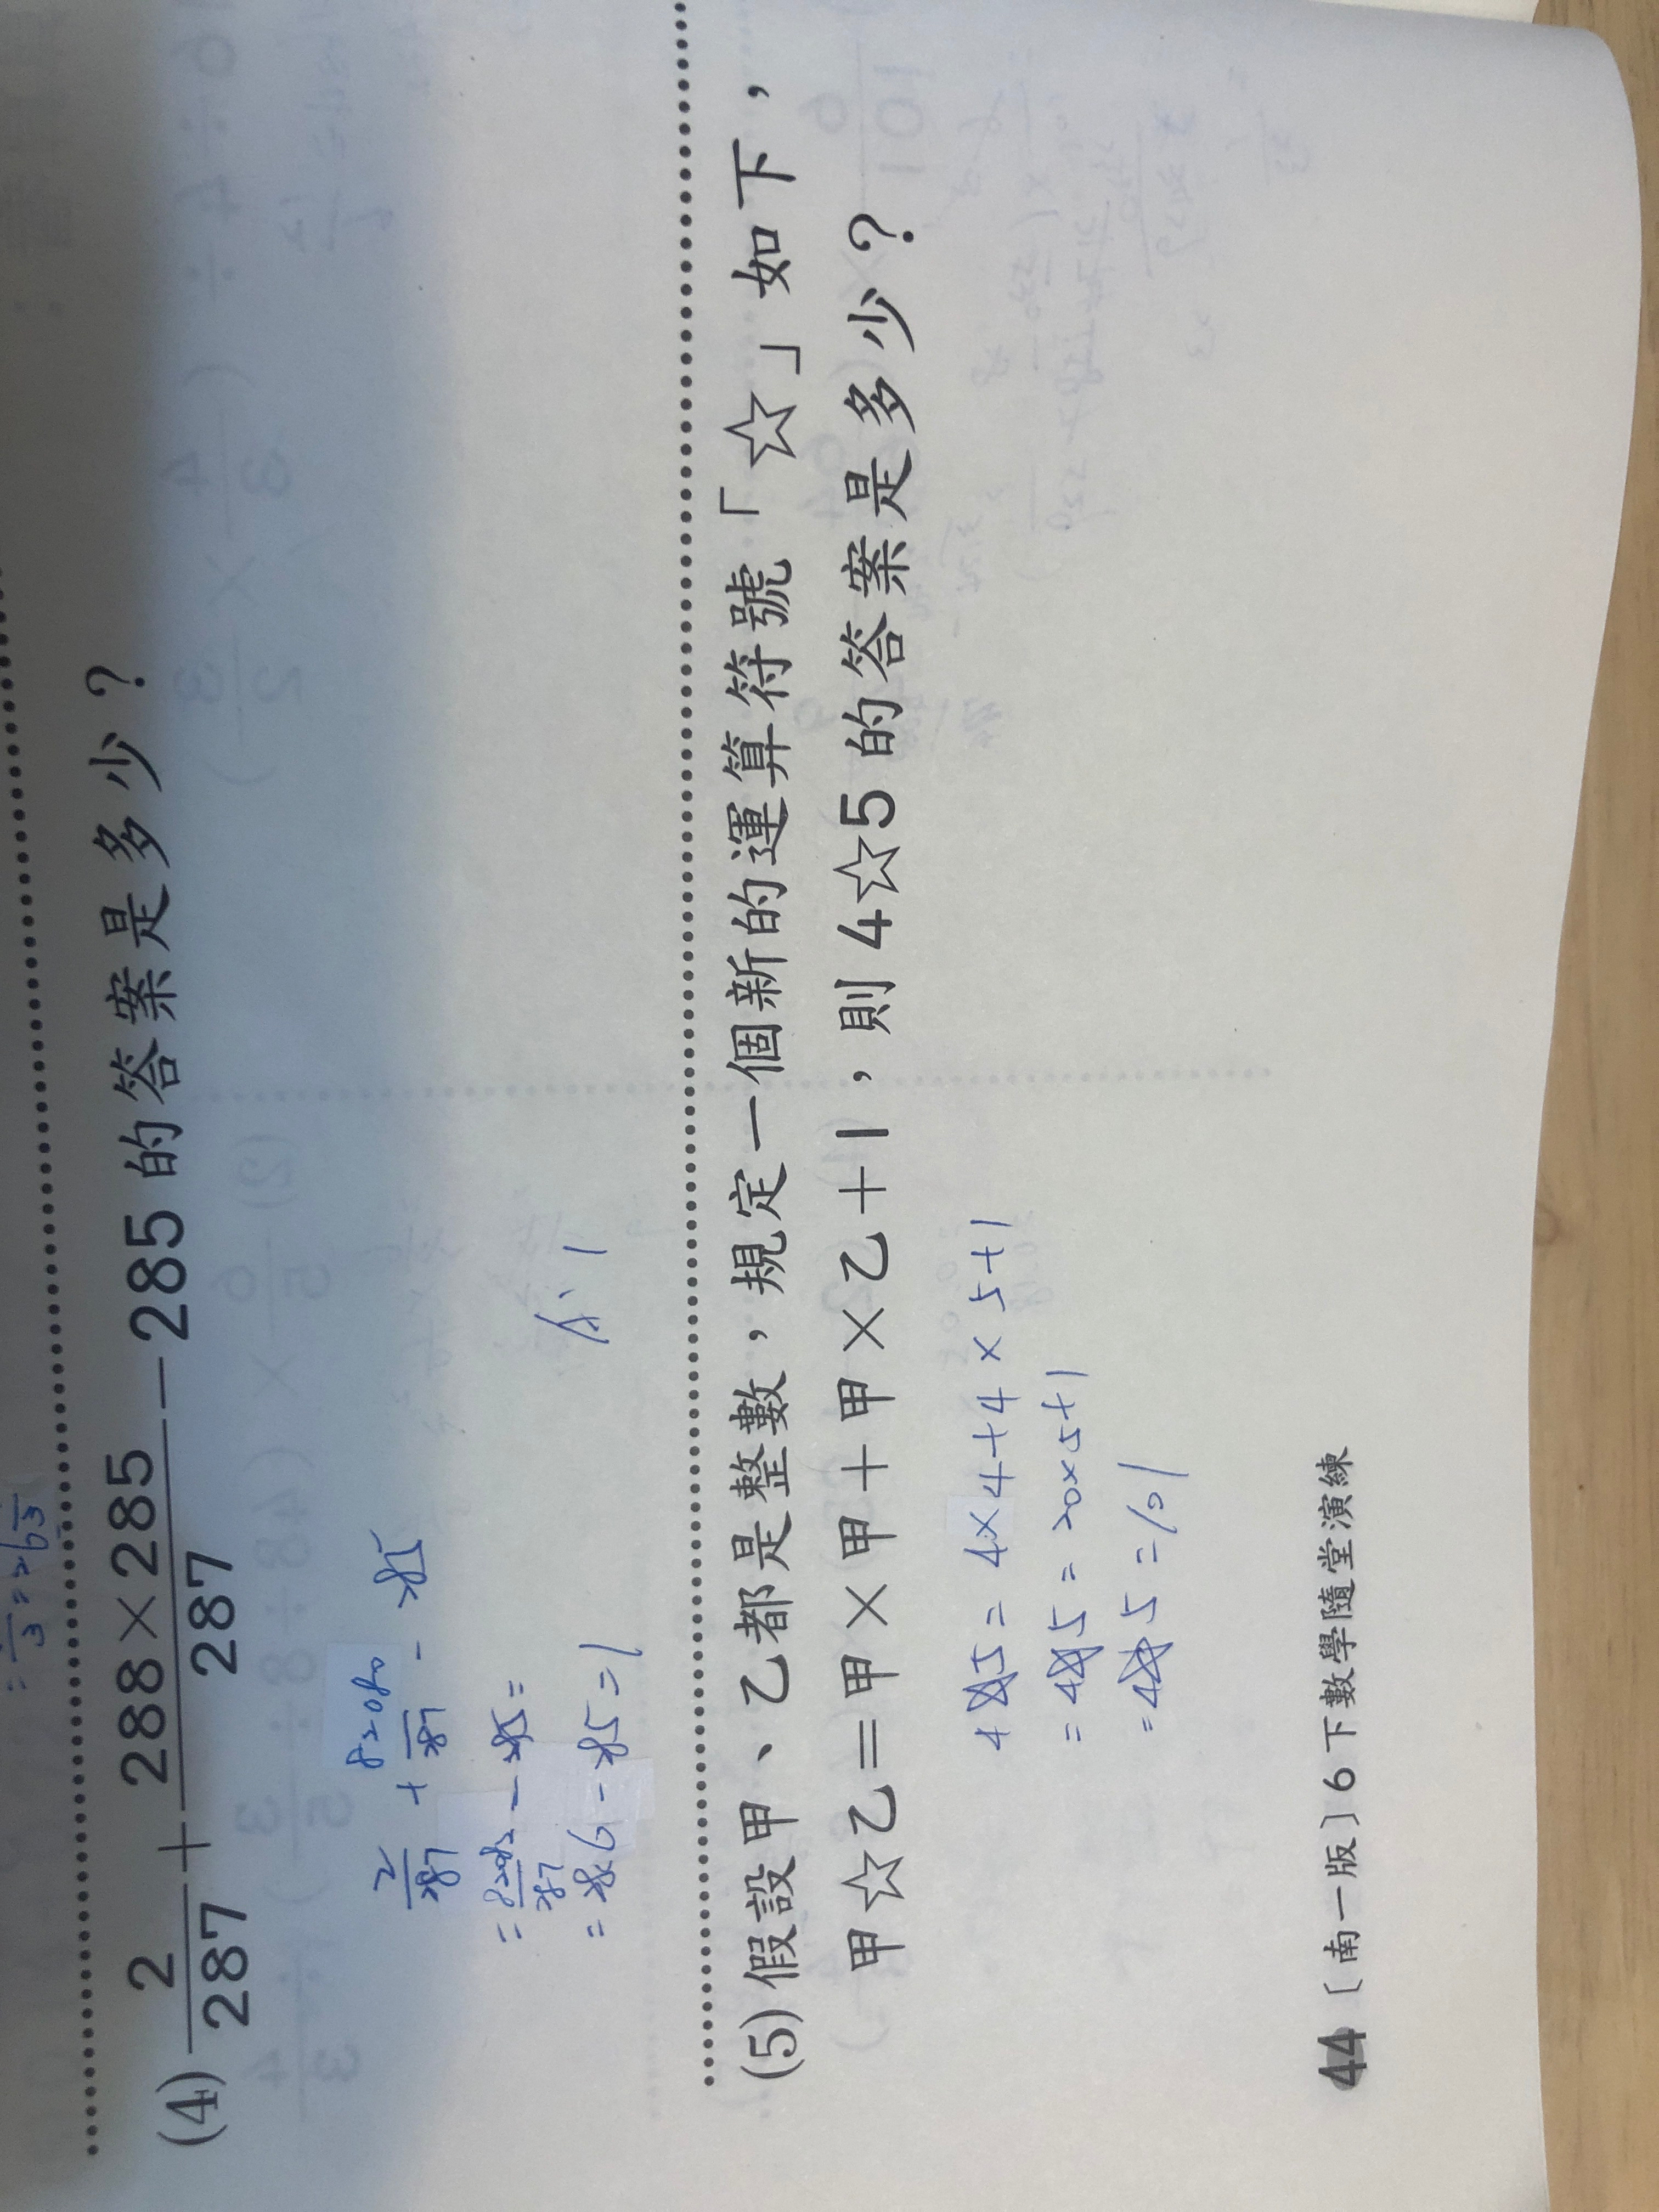 (4) 2/287 + 288×285/287 − 285 的答案是多少？
2/287 + 82080/287 - 285
= 82082/287 - 285 =
= 286 - 285 = 1
A: 1
(5) 假設甲、乙都是整數，規定一個新的運算符號「☆」如下，
甲☆乙＝甲×甲＋甲×乙＋1，則 4☆5 的答案是多少？
4☆5 = 4×4+4×5+1
= 4☆5 = 20×5+1
= 4☆5 = 101
44〔南一版〕6下數學隨堂演練